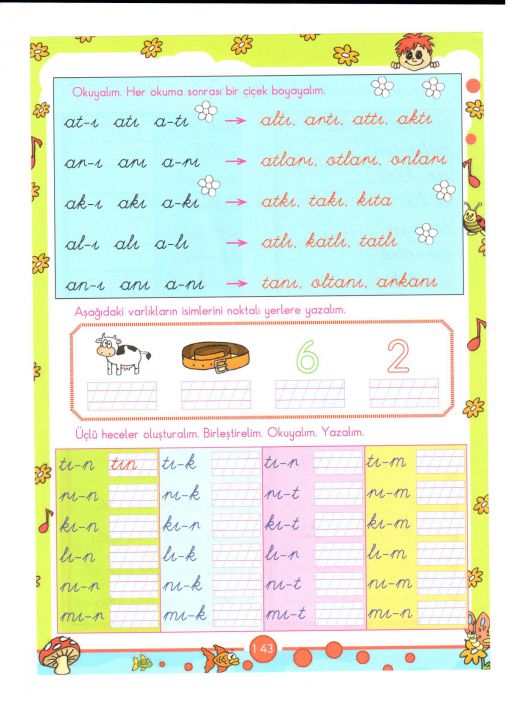 Okuyalım. Her okuma sonrası bir çiçek boyayalım.
at-ı atı a-tı → altı, artı, attı, aktı
ar-ı arı a-rı → atları, otları, onları
ak-ı akı a-kı → atkı, takı, kıta
al-ı alı a-lı → atlı, katlı, tatlı
an-ı anı a-nı → tanı, oltanı, arkanı
Aşağıdaki varlıkların isimlerini noktalı yerlere yazalım.
6 2
Üçlü heceler oluşturalım. Birleştirelim. Okuyalım. Yazalım.
tı-n tın tı-k tı-r tı-m
rı-n rı-k rı-t rı-m
kı-n kı-r kı-t kı-m
lı-n lı-k lı-r lı-m
nı-n nı-k nı-t nı-m
mı-n mı-k mı-t mı-n
143